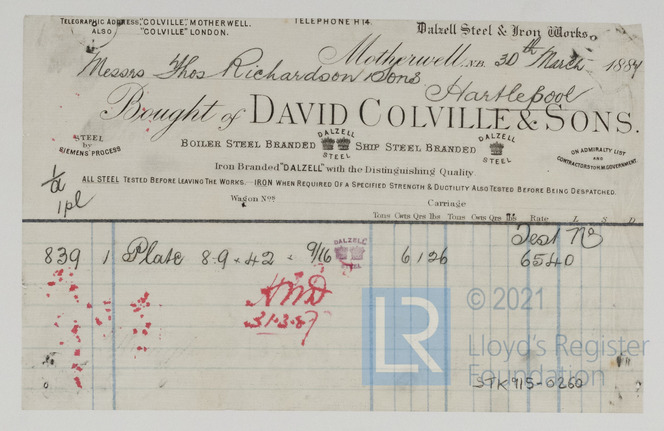 TELEGRAPHIC ADDRESS, "COLVILLE", MOTHERWELL.
ALSO "COLVILLE" LONDON.
TELEPHONE No 14.
Dalzell Steel & Iron Works,
Motherwell, N.B. 30th March 1887
Messrs Thos Richardson & Sons
Hartlepool
Bought of DAVID COLVILLE & SONS.
STEEL by SIEMENS' PROCESS
BOILER STEEL BRANDED DALZELL STEEL SHIP STEEL BRANDED DALZELL STEEL
ON ADMIRALTY LIST AND CONTRACTORS TO H.M. GOVERNMENT.
Iron Branded "DALZELL" with the Distinguishing Quality.
ALL STEEL TESTED BEFORE LEAVING THE WORKS. IRON WHEN REQUIRED OF A SPECIFIED STRENGTH & DUCTILITY ALSO TESTED BEFORE BEING DESPATCHED.
1 pl
Wagon Nos. Carriage
Tons Cwts Qrs lbs Tons Cwts Qrs lbs Rate L S D
Test No
839 1 Plate 8.9 × 42 × 9/16 DALZELL STEEL 6 1 26 6540
31.3.87
LR © 2021
Lloyd's Register
Foundation
STK915-0260